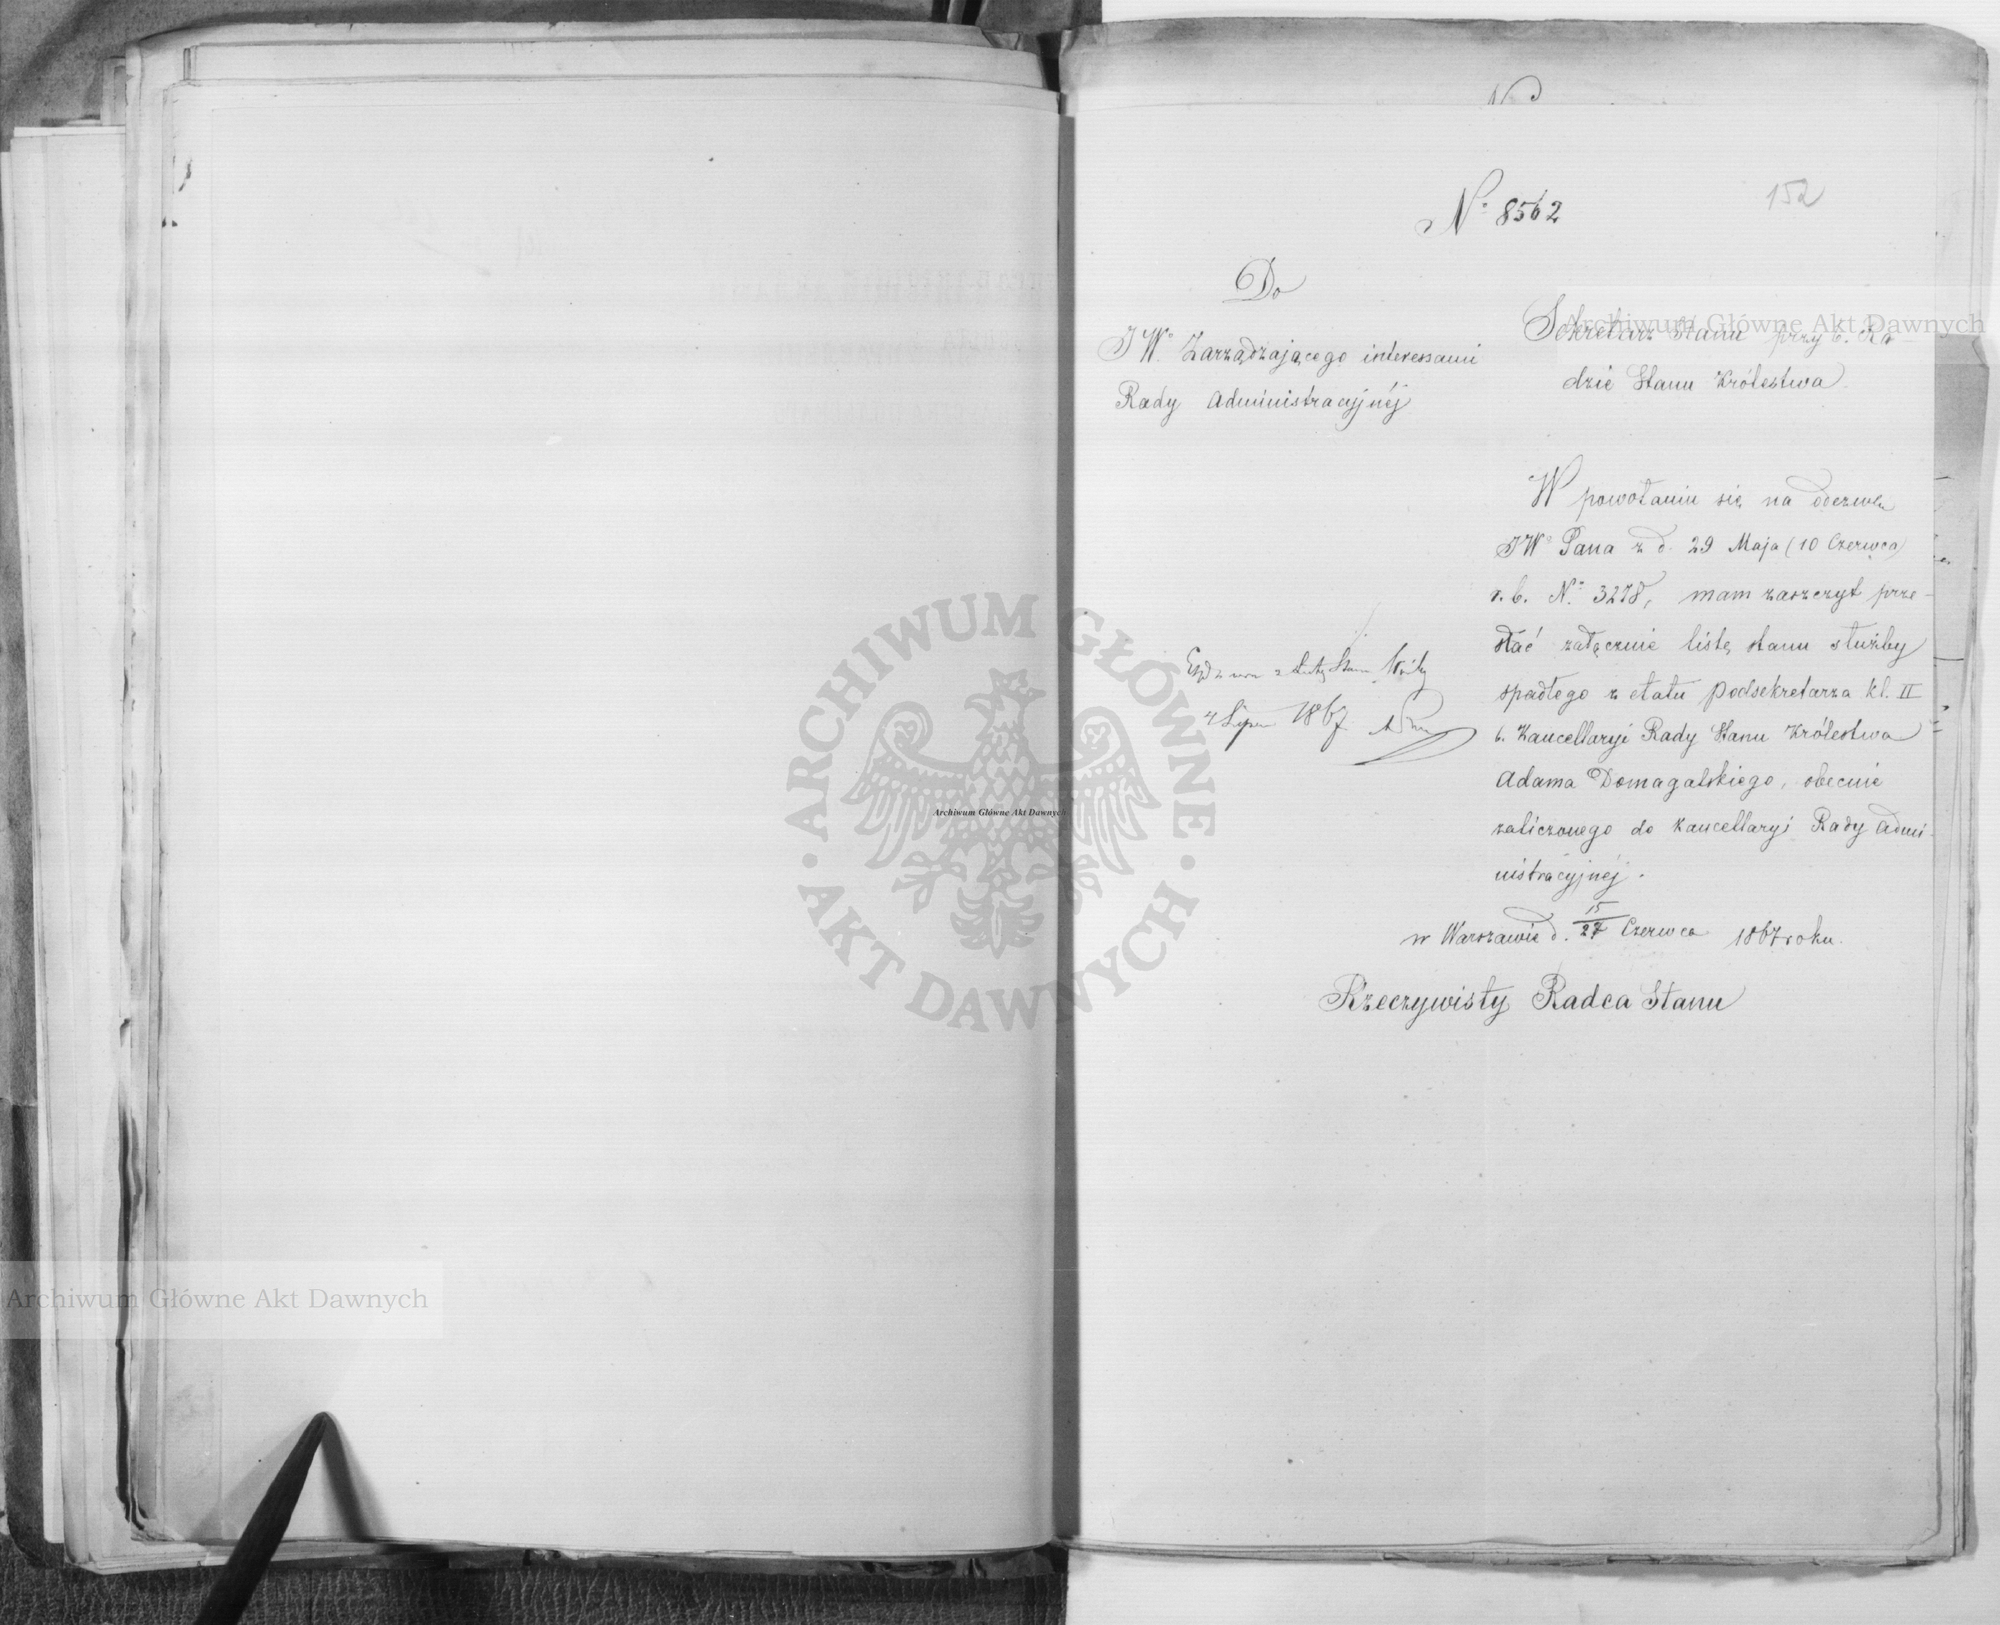 152
N° 8562
Do
JW° Zarządzającego interessami
Rady Administracyjnéj
Sekretarz Stanu przy b. Ra
dzie Stanu Królestwa
W powołaniu się na odezwę
JW° Pana z d. 29 Maja (10 Czerwca)
r. b. N° 3278, mam zaszczyt prze-
słać załącznie listę stanu służby
spadłego z etatu Podsekretarza kl. II
b. Kancellaryi Rady Stanu Królestwa
Adama Domagalskiego, obecnie
zaliczonego do Kancellaryi Rady Admi-
nistracyjnéj.
w Warszawie d. 15/27 Czerwca 1867 roku.
Rzeczywisty Radca Stanu
4 Lipca 1867
Archiwum Główne Akt Dawnych
Archiwum Główne Akt Dawnych
Archiwum Główne Akt Dawnych
ARCHIWUM GŁÓWNE
AKT DAWNYCH